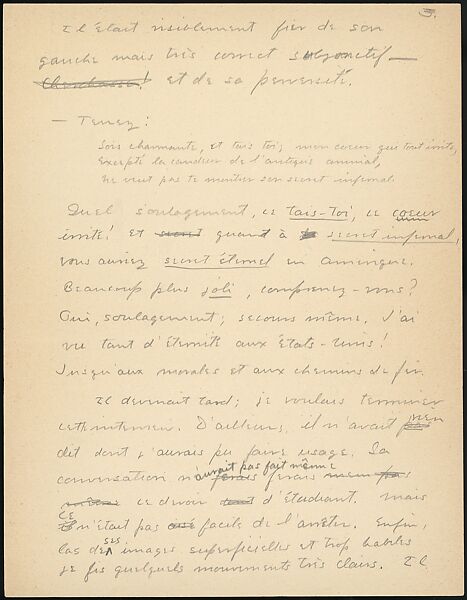 3.
Il était visiblement fier de son
gauche mais très correct subjonctif —
cherchasse! et de sa perversité.
— Tenez:
Sois charmante, et tais toi; mon coeur qui tout irrite,
Excepté la candeur de l'antique animal,
Ne veut pas te montrer son secret infernal.
Quel soulagement, ce tais-toi, ce coeur
irrité! Et secret quand à secret infernal,
vous auriez secret éternel en Amérique.
Beaucoup plus joli, comprenez-vous?
Oui, soulagement; secours même. J'ai
vu tant d'éternité aux États-Unis!
Jusqu'aux morales et aux chemins de fer.
Il devenait tard; je voulais terminer
cette interview. D'ailleurs, il n'avait pas rien
dit dont j'aurais pu faire usage. Sa
aurait pas fait même
conversation n' ferais mem pas
même ce devoir tout d'étudiant. Mais
ce
n'était pas facile de l'arrêter. Enfin,
las de ses images superficielles et trop habiles
je fis quelques mouvements très clairs. Il